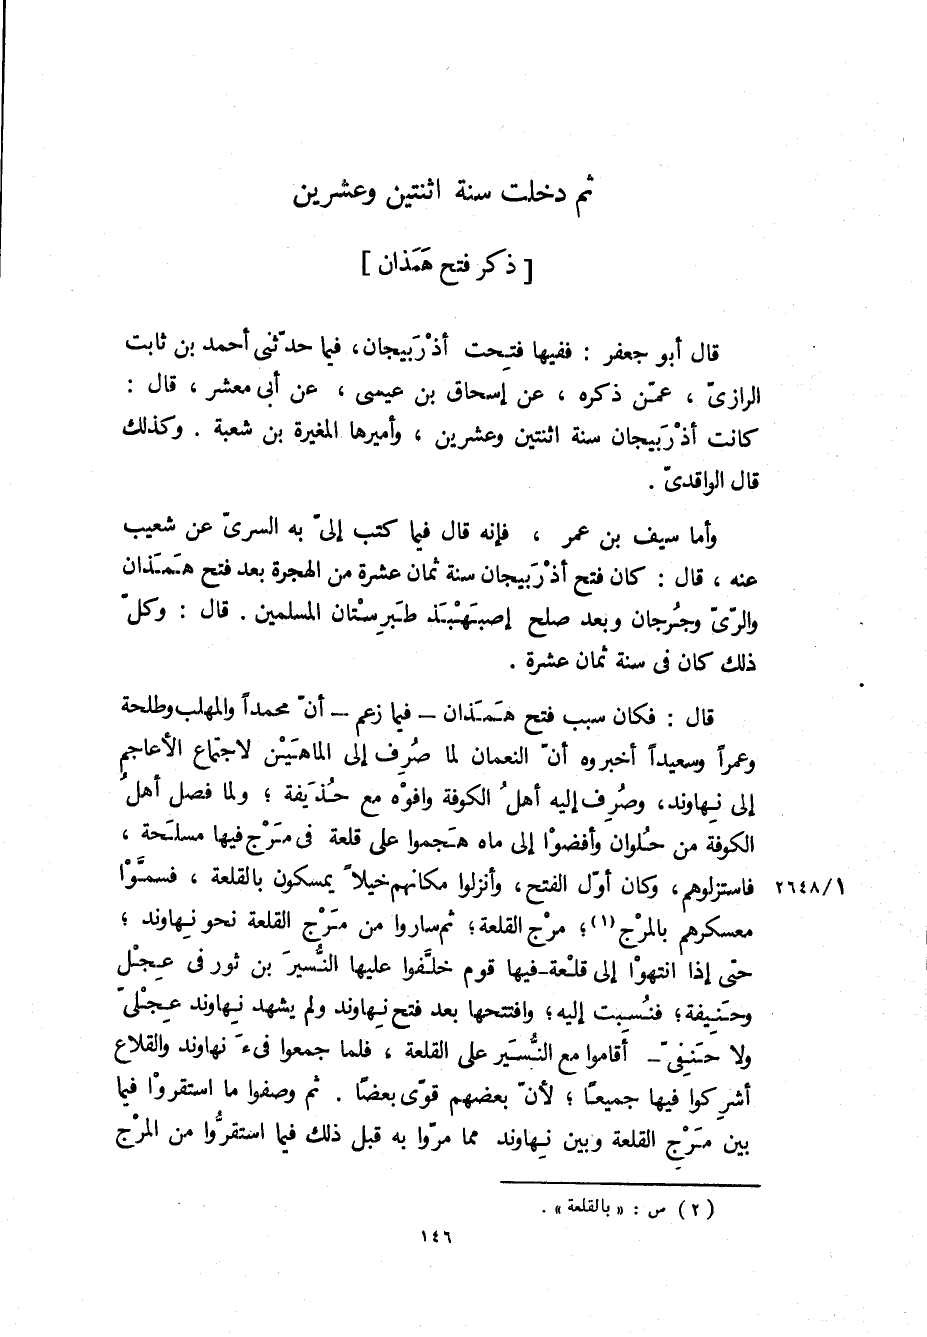 ثم دخلت سنة اثنتين وعشرين
[ ذكر فتح هَمَذان ]
قال أبو جعفر : ففيها فتِحت أذْرَبيجان، فيما حدّثنى أحمد بن ثابت
الرازىّ ، عمّن ذكره ، عن إسحاق بن عيسى ، عن أبى معشر ، قال :
كانت أذْرَبيجان سنة اثنتين وعشرين ، وأميرها المغيرة بن شعبة . وكذلك
قال الواقدىّ .
وأما سيف بن عمر ، فإنه قال فيما كتب إلىّ به السرىّ عن شعيب
عنه ، قال : كان فتح أذْرَبيجان سنة ثمان عشرة من الهجرة بعد فتح هَمَذان
والرّىّ وجُرجان وبعد صلح إصبَهْبَذ طَبَرِسْتان المسلمين . قال : وكلّ
ذلك كان فى سنة ثمان عشرة .
قال : فكان سبب فتح هَمَذان – فيما زعم – أنّ محمداً والمهلب وطلحة
وعمراً وسعيداً أخبروه أنّ النعمان لما صُرِف إلى الماهَيْن لاجتماع الأعاجم
إلى نِهاوند، وصُرِف إليه أهلُ الكوفة وافوْه مع حُذَيفة ؛ ولما فصل أهلُ
الكوفة من حُلوان وأفضوْا إلى ماه هَجموا على قلعة فى مَرْج فيها مسلَحة ،
فاستزلوهم، وكان أوّل الفتح، وأنزلوا مكانهم خيلاً يمسكون بالقلعة ، فسمَّوْا
٢٦٤٨/١
معسكرهم بالمرْج (١)؛ مرْج القلعة؛ ثم ساروا من مَرْج القلعة نحو نِهاوند ؛
حتى إذا انتهوْا إلى قلْعة–فيها قوم خلَّفوا عليها النُّسيرَ بن ثور فى عِجْل
وحَنِيفة؛ فنُسِبت إليه؛ وافتتحها بعد فتح نِهاوند ولم يشهد نِهاوند عِجْلىّ
ولا حَنَفىّ– أقاموا مع النُّسَيْر على القلعة ، فلما جمعوا فىءَ نهاوند والقلاع
أشرِكوا فيها جميعًا ؛ لأنّ بعضهم قوّى بعضًا . ثم وصفوا ما استقروْا فيما
بين مَرْجِ القلعة وبين نِهاوند مما مرّوا به قبل ذلك فيما استقرُّوا من المرْج
(٢) س : « بالقلعة » .
١٤٦